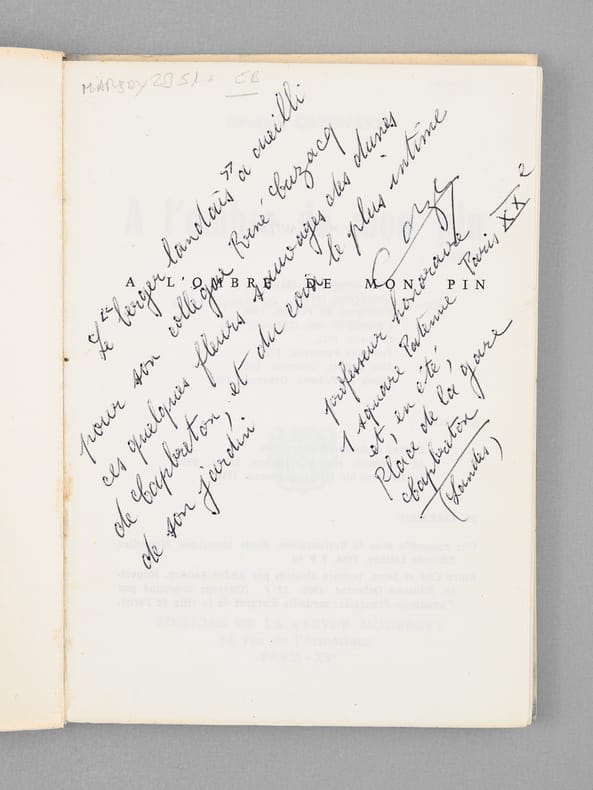 Le "berger landais" a cueilli
pour son collègue René Cuzacq
ces quelques fleurs sauvages des dunes
de Capbreton, et du coin le plus intime
de son jardin
A L'OMBRE DE MON PIN
professeur honoraire
1 square Patenne Paris XXe
et, en été,
Place de la gare
Capbreton
(Landes)